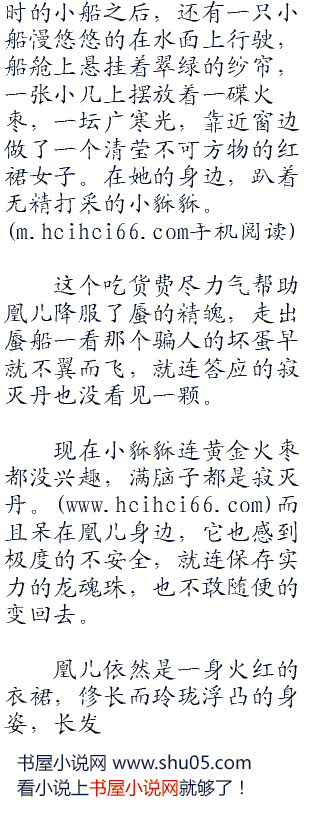 时的小船之后，还有一只小
船慢悠悠的在水面上行驶，
船舱上悬挂着翠绿的纱帘，
一张小几上摆放着一碟火
枣，一坛广寒光，靠近窗边
做了一个清莹不可方物的红
裙女子。在她的身边，趴着
无精打采的小貅貅。
(m.hcihci66.com手机阅读)
这个吃货费尽力气帮助
凰儿降服了蜃的精魄，走出
蜃船一看那个骗人的坏蛋早
就不翼而飞，就连答应的寂
灭丹也没看见一颗。
现在小貅貅连黄金火枣
都没兴趣，满脑子都是寂灭
丹。(www.hcihci66.com)而
且呆在凰儿身边，它也感到
极度的不安全，就连保存实
力的龙魂珠，也不敢随便的
变回去。
凰儿依然是一身火红的
衣裙，修长而玲珑浮凸的身
姿，长发
书屋小说网 www.shu05.com
看小说上书屋小说网就够了！